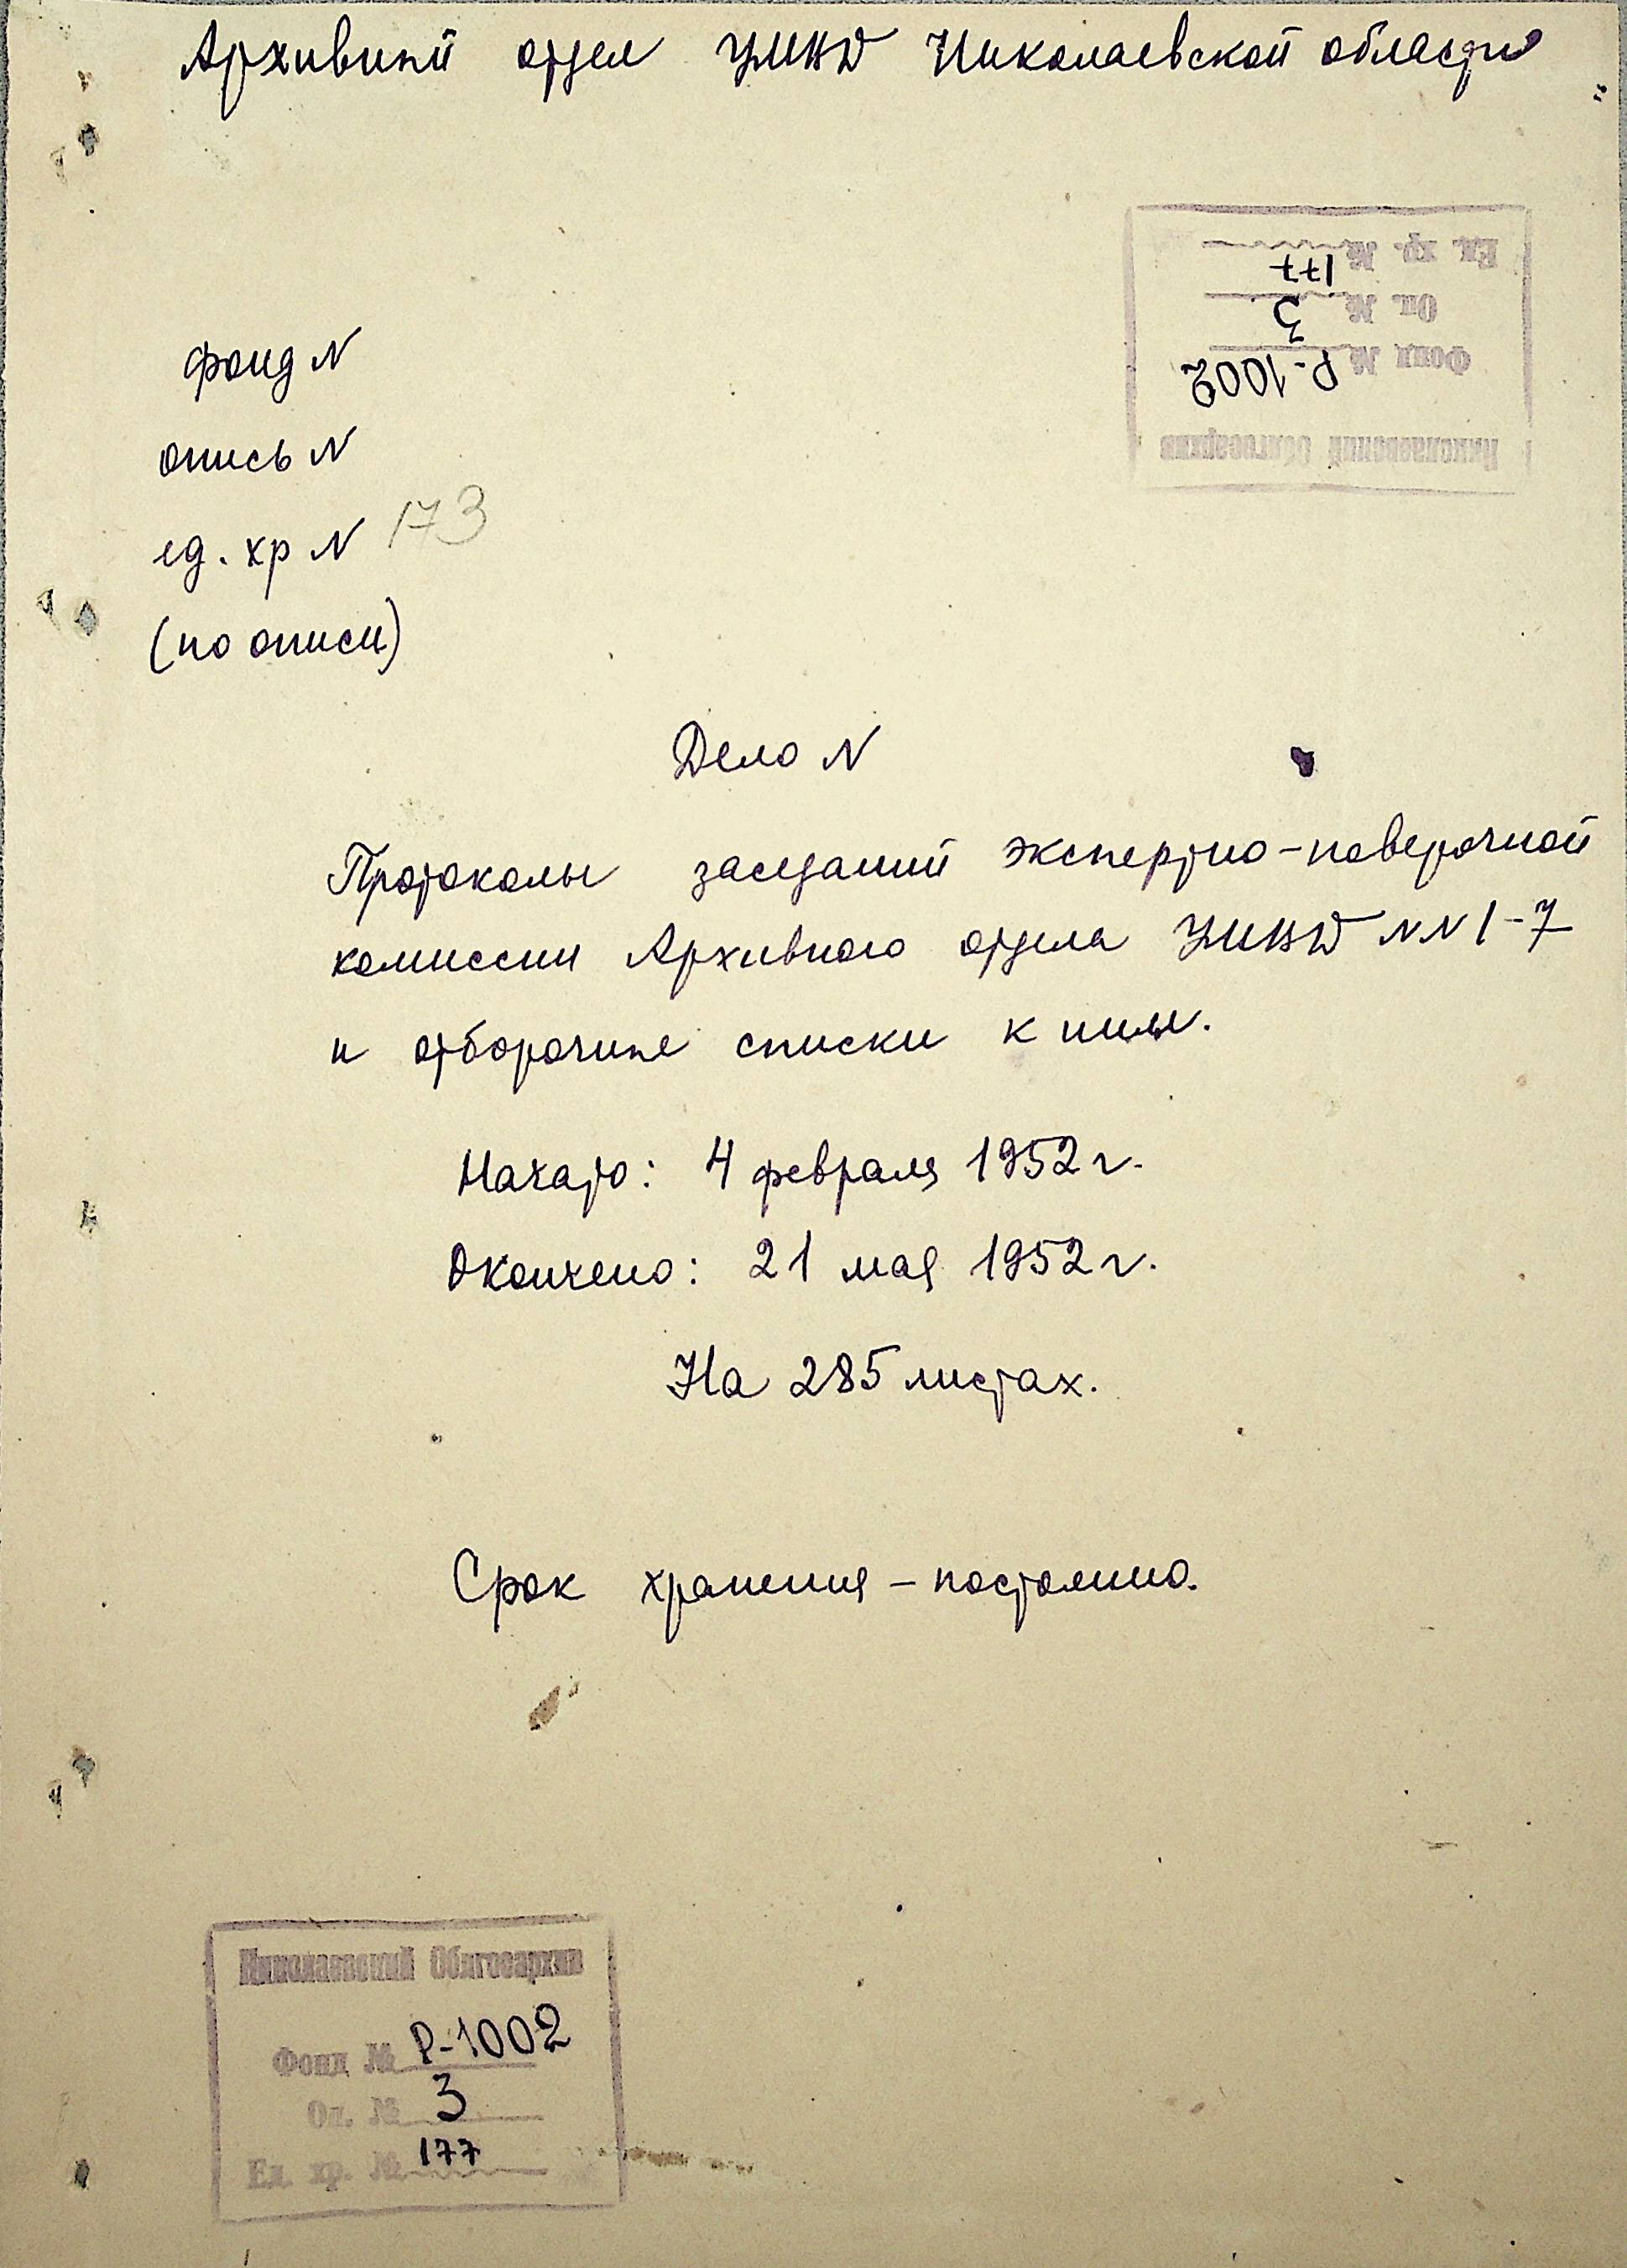 Архивный отдел УМВД Николаевской области
Ед. хр. № 177
Оп. № 3
Фонд № Р-1002
Николаевский Облгосархив
фонд N
опись N
ед. хр N 173
(по описи)
Дело N
Протоколы заседаний экспертно-поверочной
комиссии Архивного отдела УМВД NN 1-7
и отборочные списки к ним.
Начато: 4 февраля 1952 г.
Окончено: 21 мая 1952 г.
На 285 листах.
Срок хранения – постоянно.
Николаевский Облгосархив
Фонд № Р-1002
Оп. № 3
Ед. хр. № 177